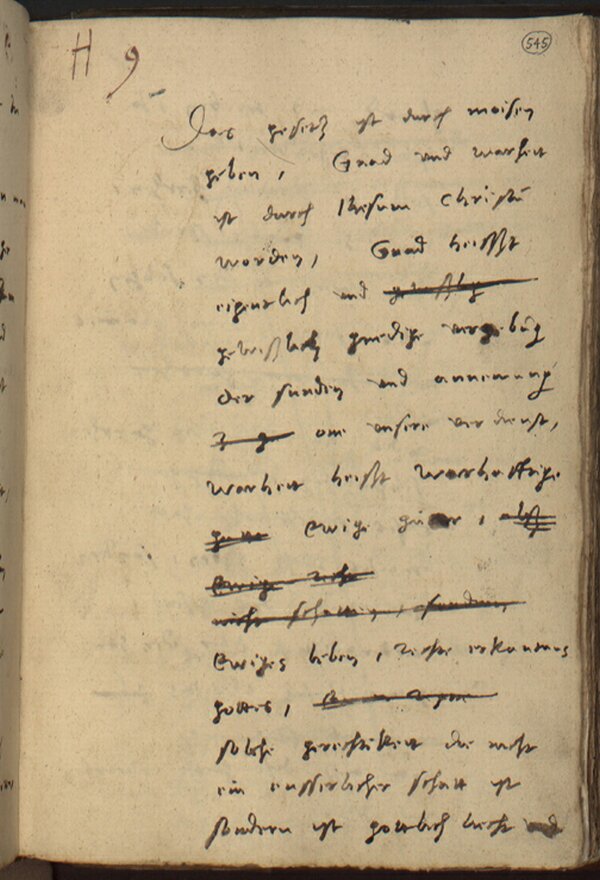 H 9
545
Das gesetz ist durch moisen
geben, Gnad und warheit
ist durch Ihesum Christū
worden, Gnad heisst
eigentlich und
gewißlich gnedige vergebūg
der sunden und annemung
one unsere verdienst,
warheit heisst warhafftige
ewige guter,
Ewige
nicht schatten, sundern
Ewiges leben, rechte erkantnus
gottes,
solche gerechtikeit die nicht
ein eusserlicher schatt ist
sondern ist gottlich liecht und